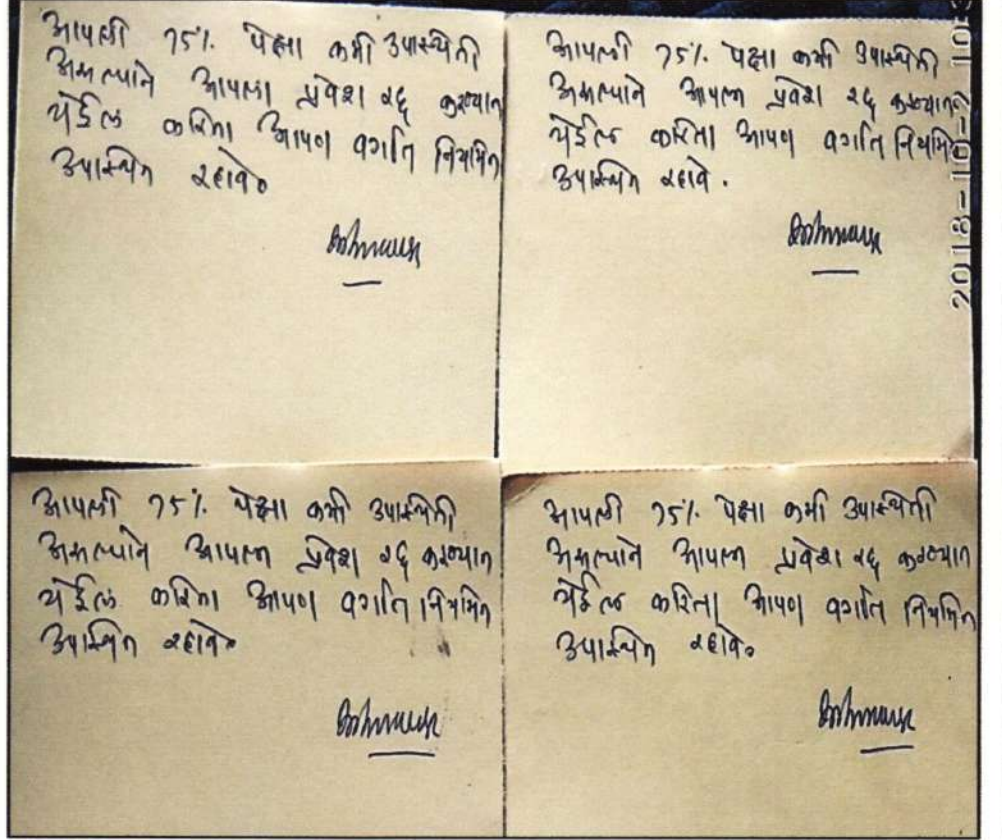 आपली 75% पेक्षा कमी उपस्थिती
असल्याने आपला प्रवेश रद्द करण्यात
येईल करिता आपण वर्गात नियमित
उपस्थित रहावे.
आपली 75% पेक्षा कमी उपस्थिती
असल्याने आपला प्रवेश रद्द करण्यात
येईल करिता आपण वर्गात नियमित
उपस्थित रहावे.
2018-10-
आपली 75% पेक्षा कमी उपस्थिती
असल्याने आपला प्रवेश रद्द करण्यात
येईल करिता आपण वर्गात नियमित
उपस्थित रहावे.
आपली 75% पेक्षा कमी उपस्थिती
असल्याने आपला प्रवेश रद्द करण्यात
येईल करिता आपण वर्गात नियमित
उपस्थित रहावे.